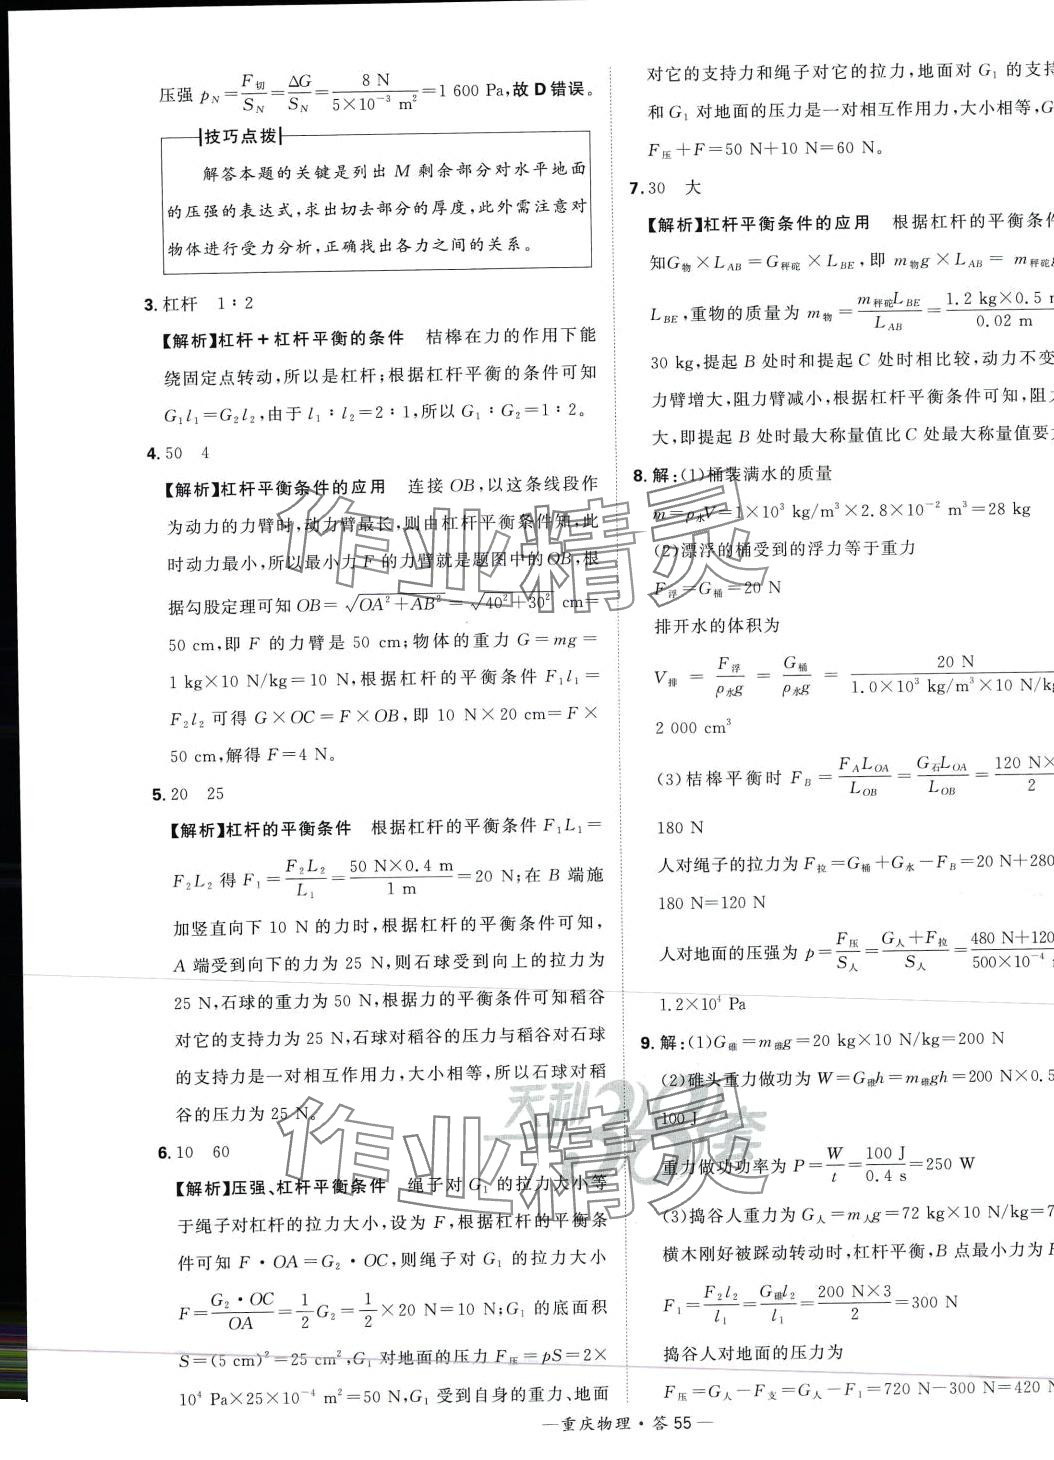 压强 p_N=F切/S_N=ΔG/S_N=8 N/(5×10⁻³ m²)=1 600 Pa,故 D 错误。
技巧点拨
解答本题的关键是列出 M 剩余部分对水平地面
的压强的表达式,求出切去部分的厚度,此外需注意对
物体进行受力分析,正确找出各力之间的关系。
3. 杠杆 1∶2
【解析】杠杆+杠杆平衡的条件 桔槔在力的作用下能
绕固定点转动,所以是杠杆;根据杠杆平衡的条件可知
G₁l₁=G₂l₂,由于 l₁∶l₂=2∶1,所以 G₁∶G₂=1∶2。
4. 50 4
【解析】杠杆平衡条件的应用 连接 OB,以这条线段作
为动力的力臂时,动力臂最长,则由杠杆平衡条件知,此
时动力最小,所以最小力 F 的力臂就是题图中的 OB,根
据勾股定理可知 OB=√(OA²+AB²)=√(40²+30²) cm=
50 cm,即 F 的力臂是 50 cm;物体的重力 G=mg=
1 kg×10 N/kg=10 N,根据杠杆的平衡条件 F₁l₁=
F₂l₂ 可得 G×OC=F×OB,即 10 N×20 cm=F×
50 cm,解得 F=4 N。
5. 20 25
【解析】杠杆的平衡条件 根据杠杆的平衡条件 F₁L₁=
F₂L₂ 得 F₁=F₂L₂/L₁=50 N×0.4 m/1 m=20 N;在 B 端施
加竖直向下 10 N 的力时,根据杠杆的平衡条件可知,
A 端受到向下的力为 25 N,则石球受到向上的拉力为
25 N,石球的重力为 50 N,根据力的平衡条件可知稻谷
对它的支持力为 25 N,石球对稻谷的压力与稻谷对石球
的支持力是一对相互作用力,大小相等,所以石球对稻
谷的压力为 25 N。
6. 10 60
【解析】压强、杠杆平衡条件 绳子对 G₁ 的拉力大小等
于绳子对杠杆的拉力大小,设为 F,根据杠杆的平衡条
件可知 F·OA=G₂·OC,则绳子对 G₁ 的拉力大小
F=G₂·OC/OA=1/2 G₂=1/2×20 N=10 N;G₁ 的底面积
S=(5 cm)²=25 cm²,G₁ 对地面的压力 F压=pS=2×
10⁴ Pa×25×10⁻⁴ m²=50 N,G₁ 受到自身的重力、地面
对它的支持力和绳子对它的拉力,地面对 G₁ 的支持
和 G₁ 对地面的压力是一对相互作用力,大小相等,G
F压+F=50 N+10 N=60 N。
7. 30 大
【解析】杠杆平衡条件的应用 根据杠杆的平衡条件
知G物×L_AB=G秤砣×L_BE,即 m物g×L_AB=m秤砣g
L_BE,重物的质量为 m物=m秤砣L_BE/L_AB=1.2 kg×0.5 m/0.02 m
30 kg,提起 B 处时和提起 C 处时相比较,动力不变
力臂增大,阻力臂减小,根据杠杆平衡条件可知,阻力
大,即提起 B 处时最大称量值比 C 处最大称量值要大
8. 解:(1)桶装满水的质量
m=ρ水V=1×10³ kg/m³×2.8×10⁻² m³=28 kg
(2)漂浮的桶受到的浮力等于重力
F浮=G桶=20 N
排开水的体积为
V排=F浮/ρ水g=G桶/ρ水g=20 N/(1.0×10³ kg/m³×10 N/kg
2 000 cm³
(3)桔槔平衡时 F_B=F_A L_OA/L_OB=G石L_OA/L_OB=120 N×/2
180 N
人对绳子的拉力为 F拉=G桶+G水-F_B=20 N+280
180 N=120 N
人对地面的压强为 p=F压/S人=(G人+F拉)/S人=480 N+120/500×10⁻⁴
1.2×10⁴ Pa
9. 解:(1)G碓=m碓g=20 kg×10 N/kg=200 N
(2)碓头重力做功为 W=G碓h=m碓gh=200 N×0.5
100 J
重力做功功率为 P=W/t=100 J/0.4 s=250 W
(3)捣谷人重力为 G人=m人g=72 kg×10 N/kg=7
横木刚好被踩动转动时,杠杆平衡,B 点最小力为 F
F₁=F₂l₂/l₁=G碓l₂/l₁=200 N×3/2=300 N
捣谷人对地面的压力为
F压=G人-F支=G人-F₁=720 N-300 N=420 N
作业精灵
天利38套
作业精灵
—重庆物理·答 55—